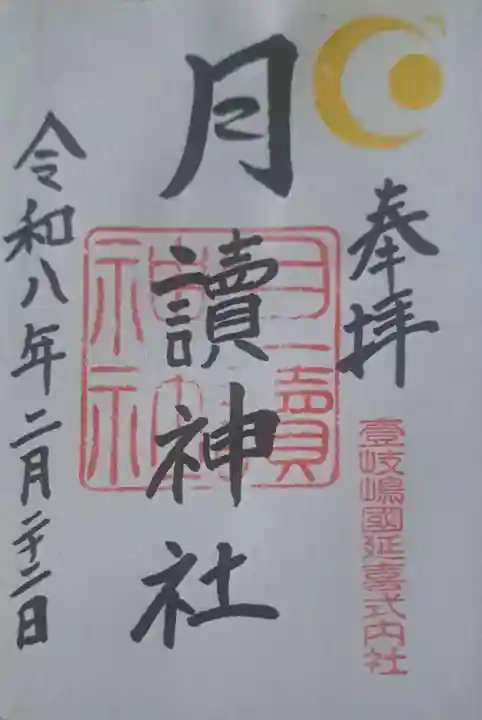 奉拝
壹岐嶋國延喜式内社
月讀神社
月讀神社
令和八年二月二十二日